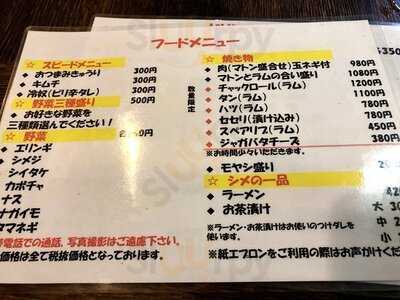 フードメニュー
☆ スピードメニュー
◆ おつまみきゅうり 300円
◆ キムチ 300円
◆ 冷奴(ピリ辛タレ) 300円
☆ 野菜三種盛り 500円
◆ お好きな野菜を
三種類選んでください!
☆ 野菜
エリンギ
シメジ
シイタケ
カボチャ
ナス
ナガイモ
タマネギ
電話での通話、写真撮影はご遠慮下さい。
価格は全て税抜価格となっております。
数量限定
☆ 焼き物
◆ 肉(マトン盛合せ)玉ネギ付 980円
◆ マトンとラムの合い盛り 1080円
◆ チャックロール(ラム) 1200円
◆ タン(ラム) 1100円
◆ ハツ(ラム) 780円
◆ セセリ(漬け込み) 780円
◆ スペアリブ(ラム) 450円
◆ ジャガバタチーズ 380円
※お時間少々いただきます。
◆ モヤシ盛り
☆ シメの一品
◆ ラーメン
◆ お茶漬け 大
中
小
※ラーメン・お茶漬けはお使いのつけダレを
使います。
※紙エプロンをご利用の際はお声がけくだ